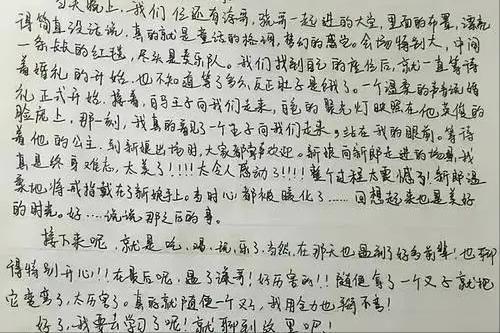 当天晚上,我们位还有海哥,强哥一起进的大堂,里面的布置,漂亮
得简直没话说,真的就是童话的格调,梦幻的感觉。会场特别大,中间
一条长长的红毯,尽头是乐队。我们找到自己的座位后,就一直等待
着婚礼的开始,也不知道等了多久,反正肚子是饿了。一个温柔的声音说婚
礼正式开始,接着,白马王子向我们走来,白色的聚光灯映照在他英俊的
脸庞上,那一刻,我真的看见了一个王子向我们走来。站在我的眼前。等待
着他的公主,到新娘出场时,大家都鼓掌欢迎。新娘向新郎走进的场景,我
真是终身难忘,太美了!!!!太令人感动了!!!!整个过程太震憾了!新郎温
柔地将戒指戴在了新娘手上。当时心都被暖化了……回想起来也是美好
的时光。好……说说那之后的事。
接下来呢,就是吃,喝,玩,乐了,当然,在那天也遇到了好多前辈!也聊
得特别开心!!在最后呢,遇了海哥!好厉害的!!随便拿了一个叉子就把
它变弯了,太厉害了。真的就随便一个叉子,我用全力也掰不弯!
好了,我要去学习了呢!就聊到这里吧!